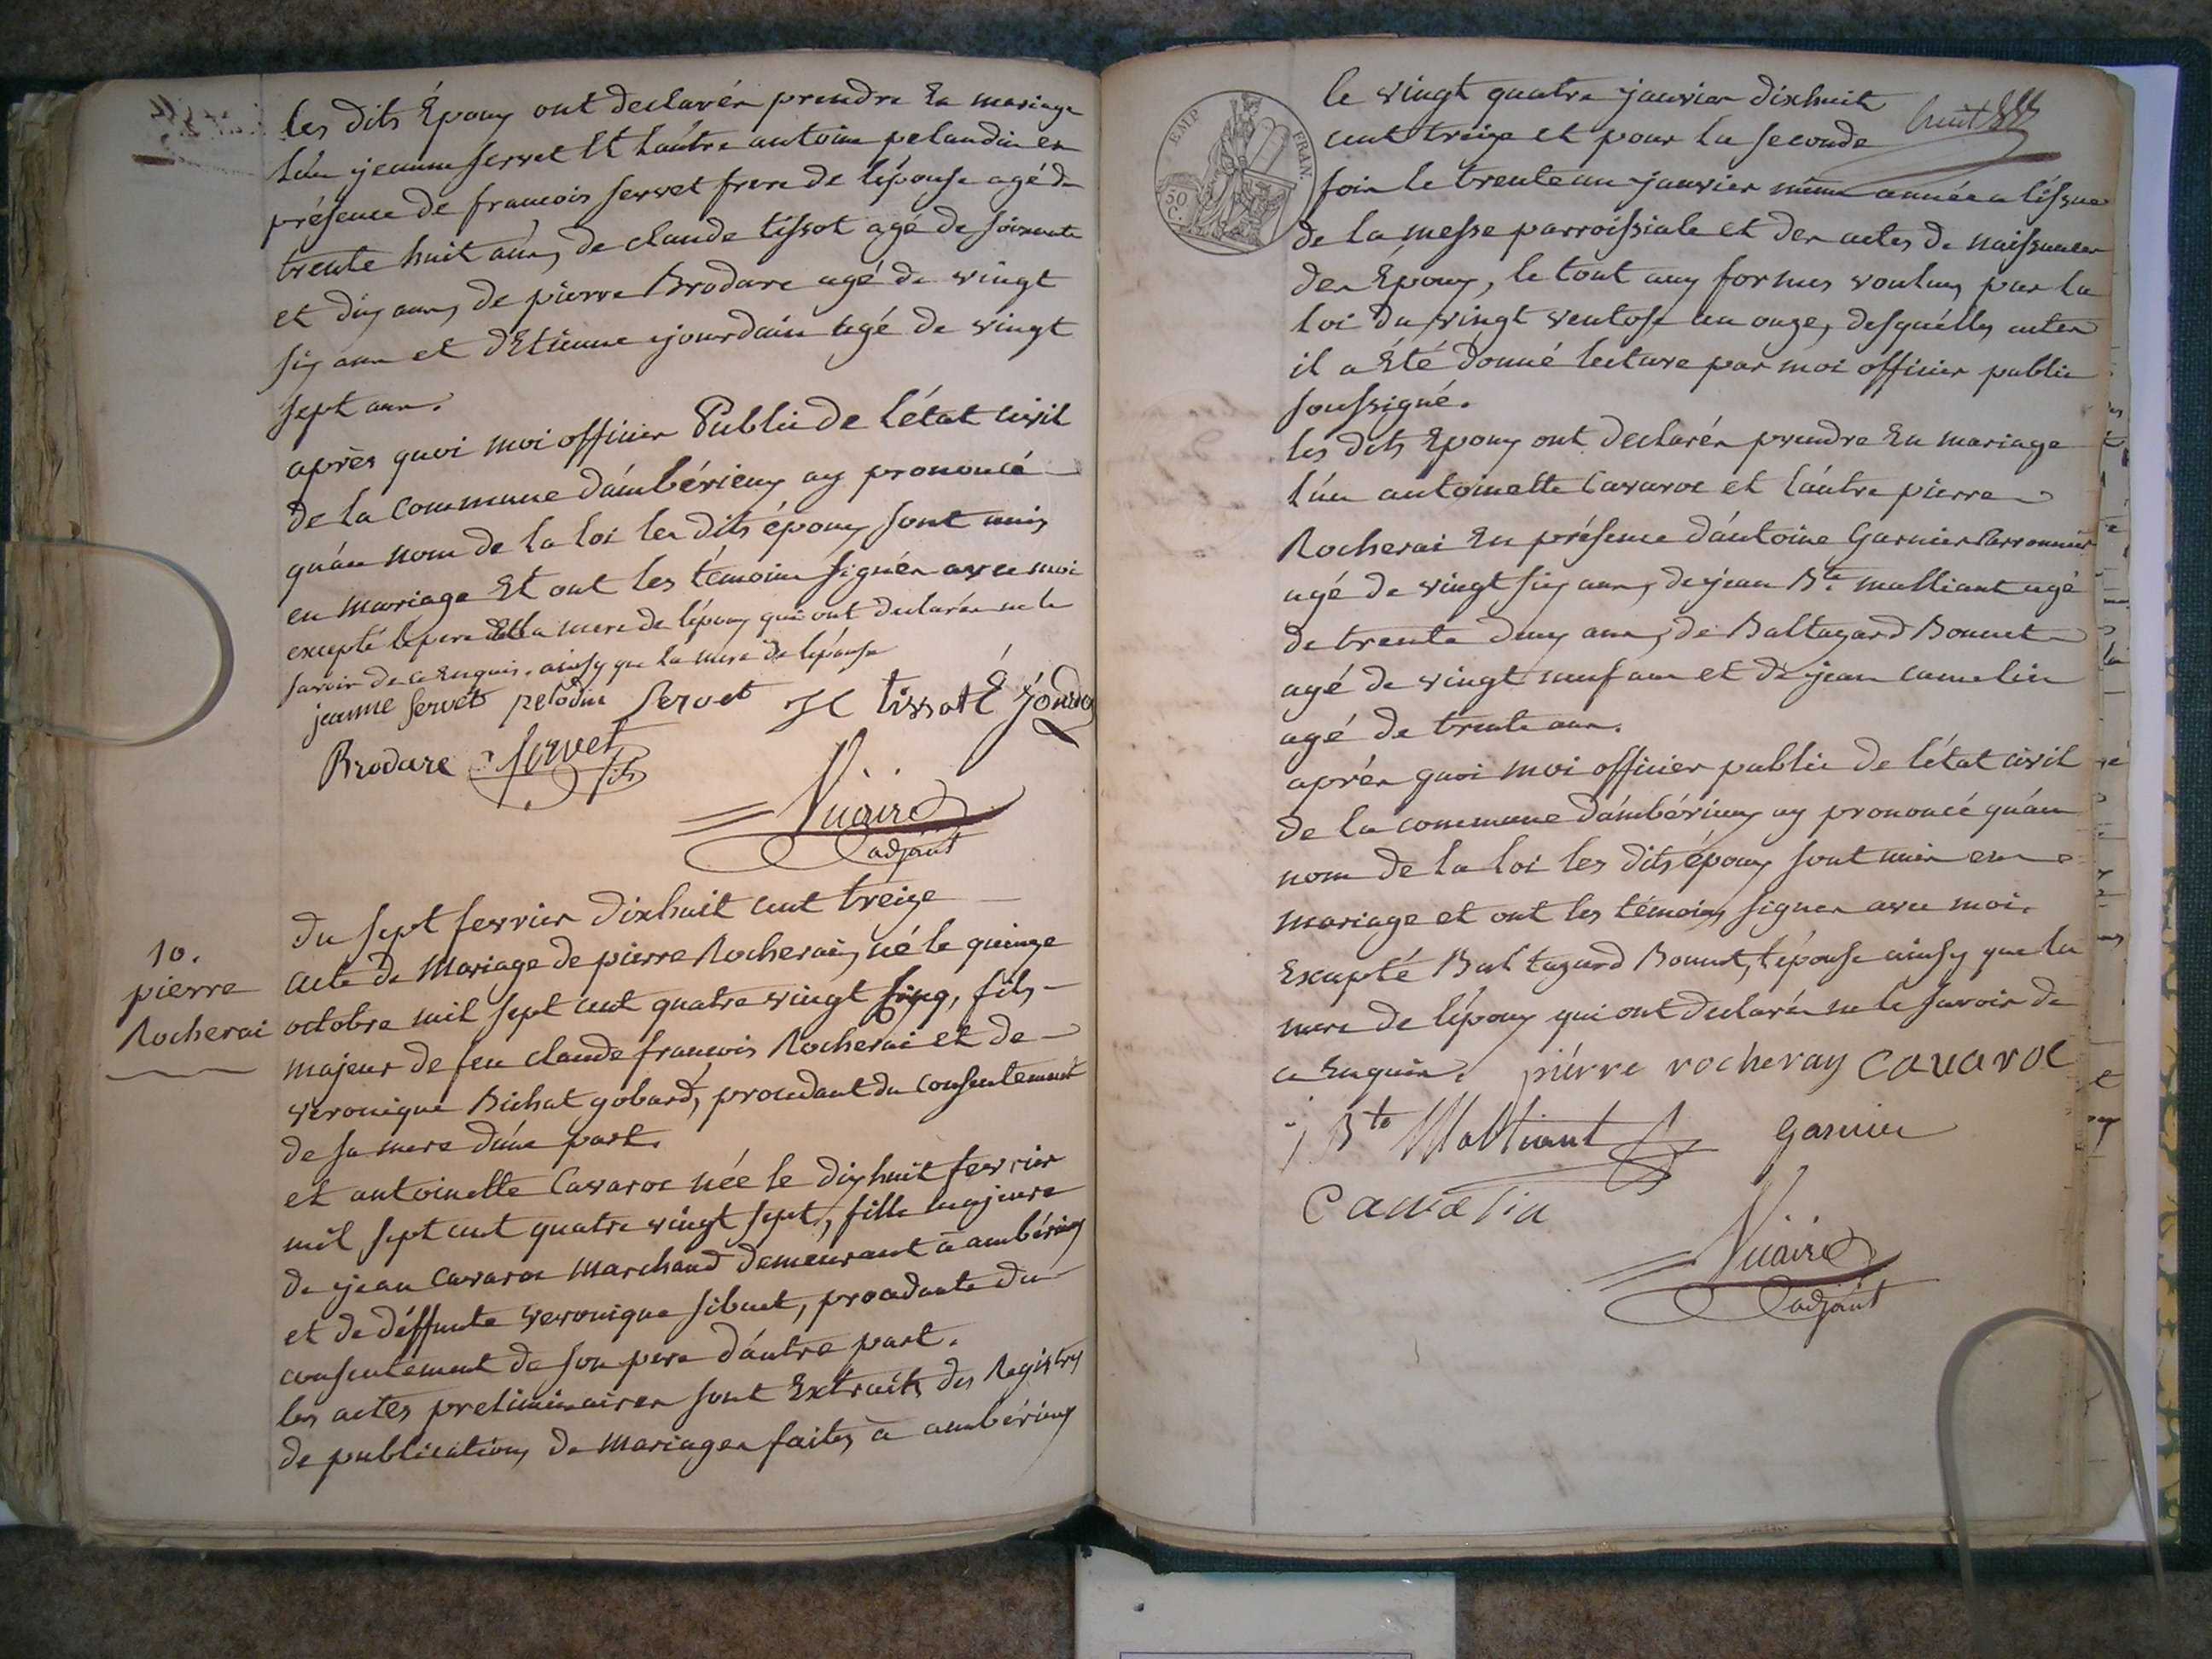 les dits Époux ont declarés prendre En mariage
l'un jeanne servet Et l'autre antoine pelaudin en
présence de francois servet frere de l'épouse agé de
trente huit ans, de claude tissot agé de soixante
et dix ans, de pierre Brodare agé de vingt
six ans et d'Etienne jourdain agé de vingt
sept ans.
après quoi moi officier Public de l'état civil
de la Commune d'ambérieux ay prononcé
qu'au nom de la loi les dits époux sont unis
en mariage Et ont les témoins signés avec moi
excepté le pere et la mere de l'époux qui ont declarés ne le
savoir de ce Enquis. ainsy que la mere de l'épouse
jeanne servet pelodin Servet tissot
Brodare servet fils
Vicaire
adjoint
du sept fevrier dixhuit cent treize
10.
pierre
Rocherai
acte de Mariage de pierre Rocherai, né le quinze
octobre mil sept cent quatre vingt sing, fils
majeur de feu claude francois Rocherai et de
veronique Bichat gobard, procedant du consentement
de sa mere d'une part.
et antoinette Cavaroc née le dix huit fevrier
mil sept cent quatre vingt sept, fille majeure
de jean Cavaroc marchand demeurant à ambérieux
et de déffunte veronique sibuet, procedante du
consentement de son pere d'autre part.
les actes preliminaires sont Extraits des Registres
de publications de mariages faites à ambérieux
EMP. FRAN.
50 C.
huit
le vingt quatre janvier dixhuit
cent treize et pour la seconde
fois le trente un janvier même année a l'issue
de la messe parroissiale et des actes de naissances
des Époux, le tout aux formes voulues par la
loi du vingt ventose an onze, desquelles actes
il a Eté donné lecture par moi officier public
soussigné.
les dits Epoux ont declarés prendre En mariage
l'un antoinette Cavaroc et l'autre pierre
Rocherai En présence d'antoine Garnier Perronnier
agé de vingt six ans, de jean Bte. malliant agé
de trente deux ans, de Baltazard Bonnet
agé de vingt neuf ans et de jean camelin
agé de trente ans.
après quoi moi officier public de l'état civil
de la commune d'ambérieux ay prononcé qu'au
nom de la loi les dits époux sont unis en
mariage et ont les témoins signer avec moi.
Excepté Baltazard Bonnet, l'épouse ainsy que la
mere de l'époux qui ont declarés ne le savoir de
ce Enquis. piérre rocheray Cavaroc
j Bte Malliant garnier
Camelin
Vicaire
adjoint